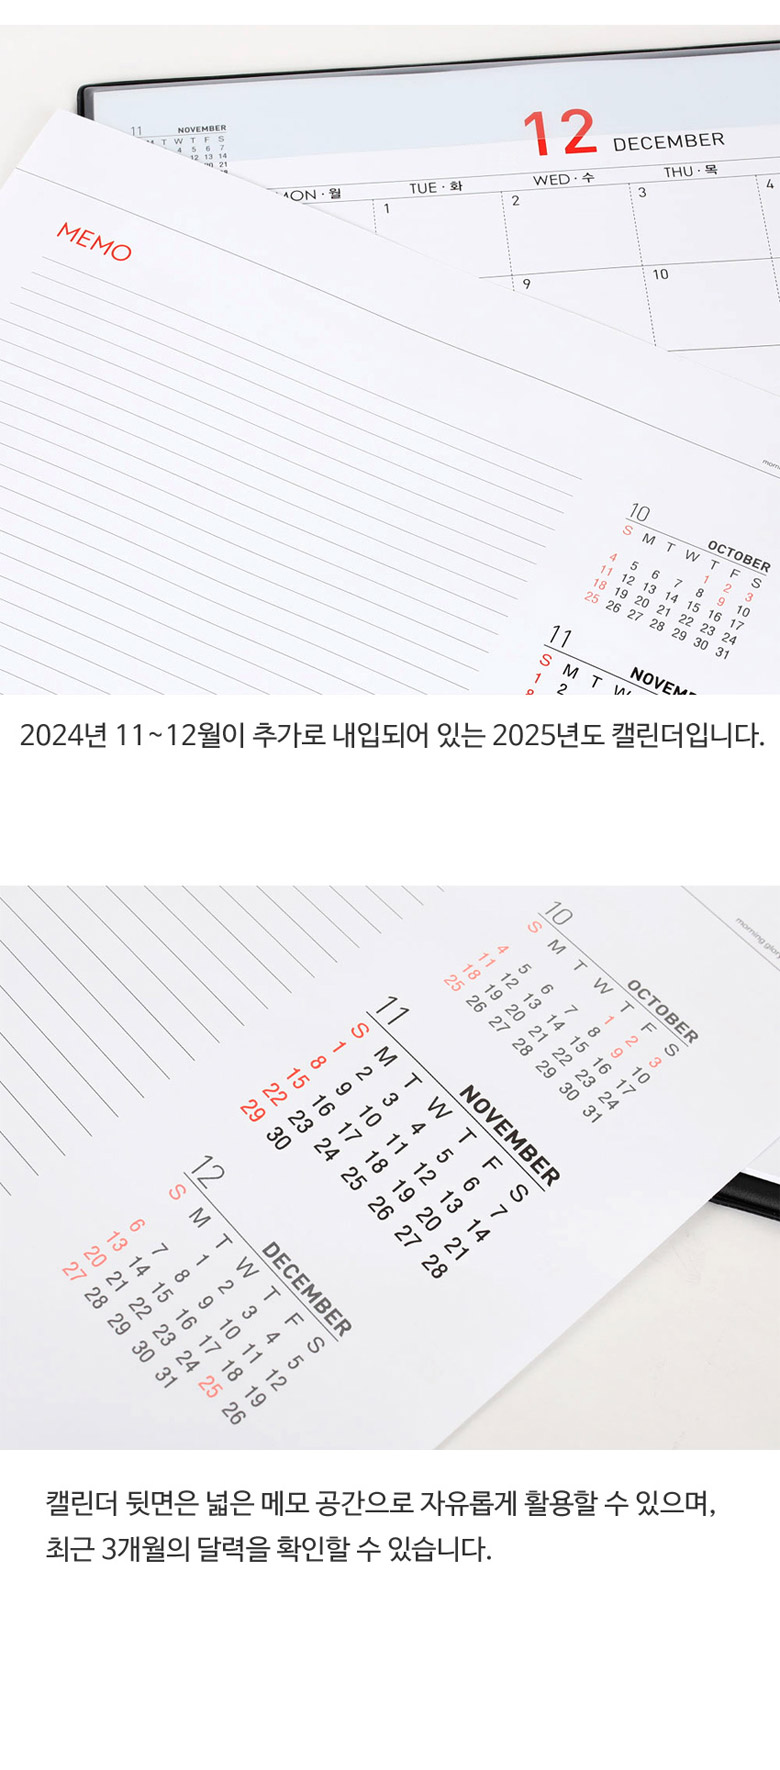 11 NOVEMBER
T W T F S
4 5 6 7
12 13 14
20 21
28
12 DECEMBER
MON · 월 TUE · 화 WED · 수 THU · 목
1 2 3 4
9 10
MEMO
10
OCTOBER
S M T W T F S
1 2 3
4 5 6 7 8 9 10
11 12 13 14 15 16 17
18 19 20 21 22 23 24
25 26 27 28 29 30 31
11
S M T W
1 2
2024년 11~12월이 추가로 내입되어 있는 2025년도 캘린더입니다.
morning glory
10
OCTOBER
S M T W T F S
1 2 3
4 5 6 7 8 9 10
11 12 13 14 15 16 17
18 19 20 21 22 23 24
25 26 27 28 29 30 31
11
NOVEMBER
S M T W T F S
1 2 3 4 5 6 7
8 9 10 11 12 13 14
15 16 17 18 19 20 21
22 23 24 25 26 27 28
29 30
12
DECEMBER
S M T W T F S
1 2 3 4 5
6 7 8 9 10 11 12
13 14 15 16 17 18 19
20 21 22 23 24 25 26
27 28 29 30 31
캘린더 뒷면은 넓은 메모 공간으로 자유롭게 활용할 수 있으며,
최근 3개월의 달력을 확인할 수 있습니다.